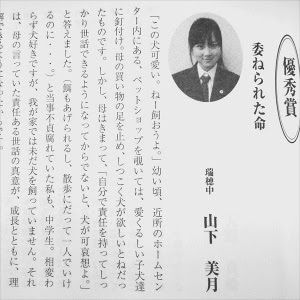 優秀賞
委ねられた命
瑞穂中　山下　美月
「この犬可愛い。ねー飼おうよ。」幼い頃、近所のホームセン
ター内にある、ペットショップを覗いては、愛くるしい子犬達
に釘付け。母の買い物の足を止め、しつこく犬が欲しいとねだっ
たものです。しかし、母はきまって、「自分で責任を持ってしっ
かり世話できるようになってからでないと、犬が可哀想よ。」
と答えました。（餌もあげられるし、散歩にだって一人でいけ
るのに・・・。）と当時不貞腐れていた私も、中学生。相変わ
らず犬好きですが、我が家では未だ犬を飼っていません。それ
は、母の言っていた責任ある世話の真意が、成長とともに、理